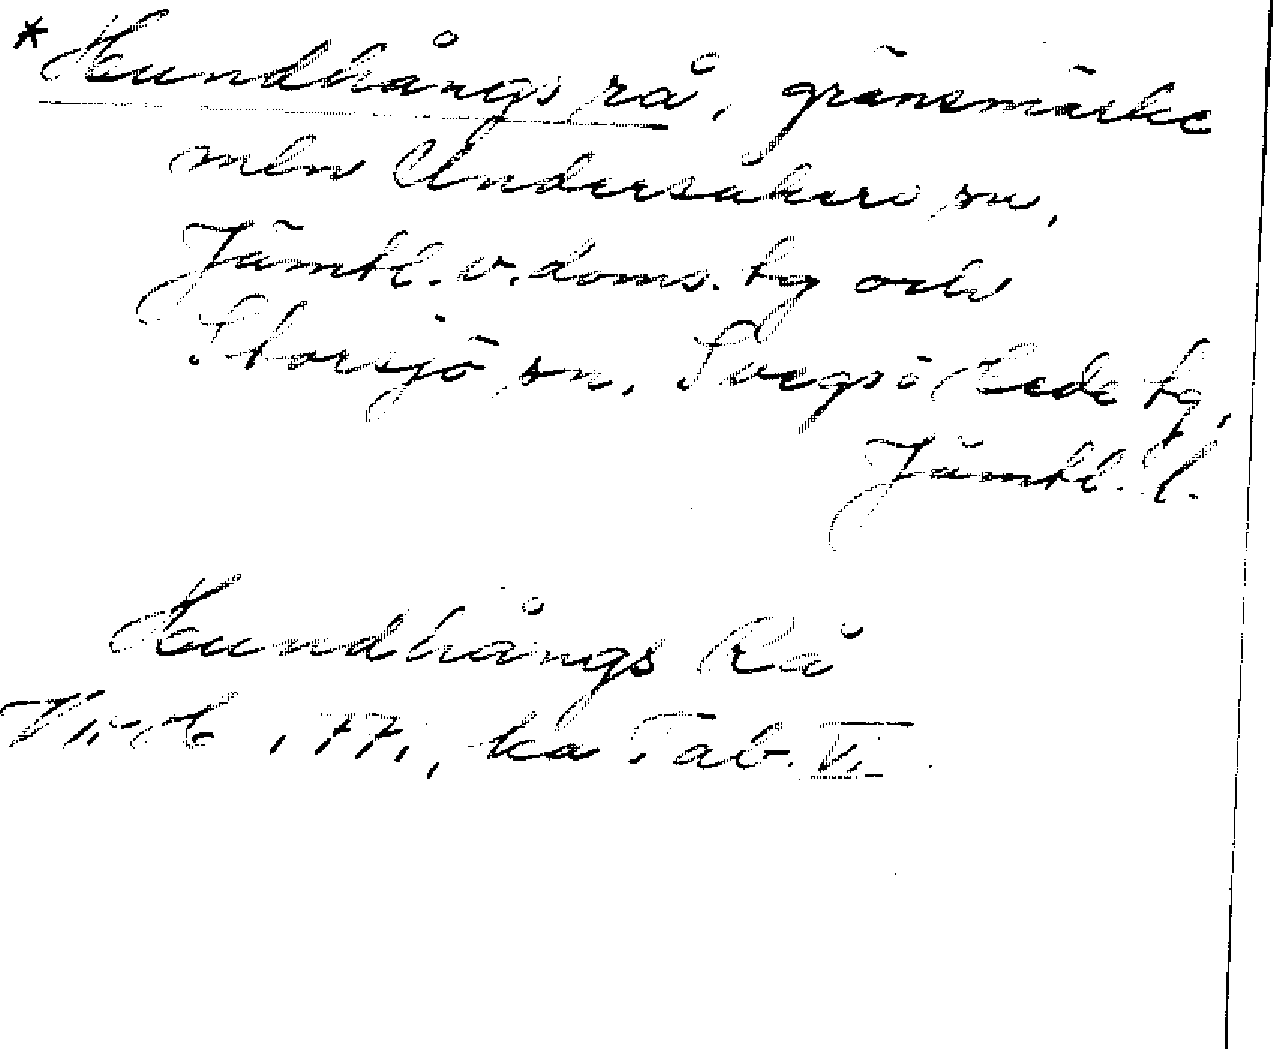 * Hundhångs rå, gränsmärke
mln Undersåkers sn,
Jämtl. v. doms. tg och
Storsjö sn, Svegs o Hede tg,
Jämtl. l.
Hundhångs Rå
ka Tab. VI